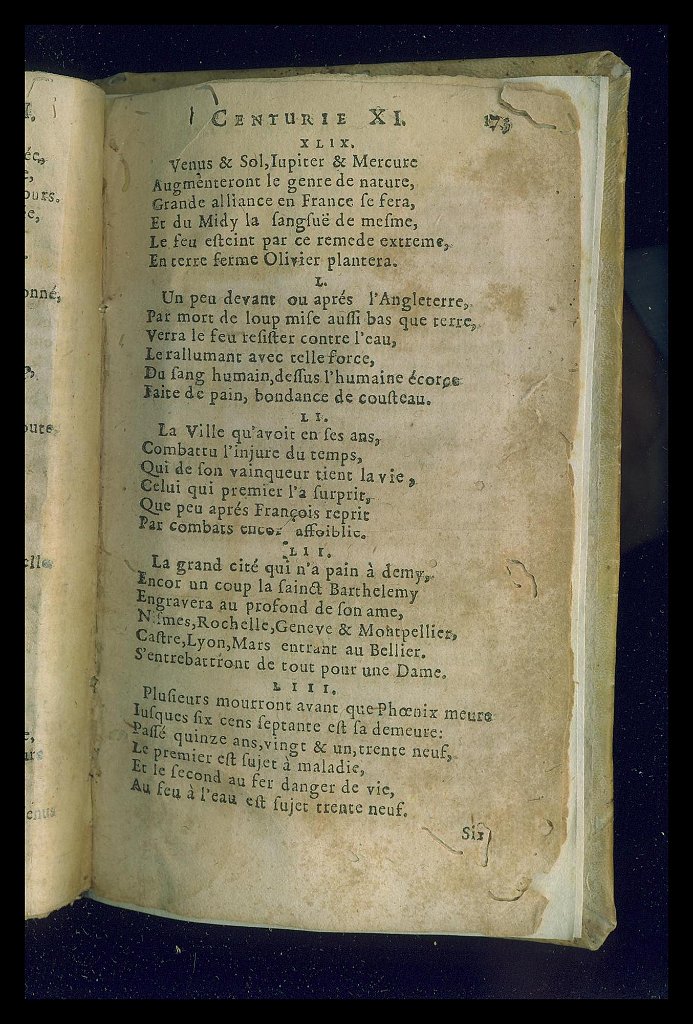 I.
ée,
ours.
onné,
oute
elle
enus
CENTURIE XI. 175
XLIX.
Venus & Sol, Iupiter & Mercure
Augmenteront le genre de nature,
Grande alliance en France se fera,
Et du Midy la sangsuë de mesme,
Le feu esteint par ce remede extreme,
En terre ferme Olivier plantera.
L.
Un peu devant ou aprés l'Angleterre,
Par mort de loup mise aussi bas que terre,
Verra le feu resister contre l'eau,
Le rallumant avec telle force,
Du sang humain, dessus l'humaine écorce
Faite de pain, bondance de cousteau.
LI.
La Ville qu'avoit en ses ans,
Combattu l'injure du temps,
Qui de son vainqueur tient la vie,
Celui qui premier l'a surprit,
Que peu aprés François reprit
Par combats encor affoiblie.
LII.
La grand cité qui n'a pain à demy,
Encor un coup la sainct Barthelemy
Engravera au profond de son ame,
Nismes, Rochelle, Geneve & Montpellier,
Castre, Lyon, Mars entrant au Bellier.
S'entrebattront de tout pour une Dame.
LIII.
Plusieurs mourront avant que Phœnix meure
Iusques six cens septante est sa demeure:
Passé quinze ans, vingt & un, trente neuf,
Le premier est sujet à maladie,
Et le second au fer danger de vie,
Au feu à l'eau est sujet trente neuf.
Six